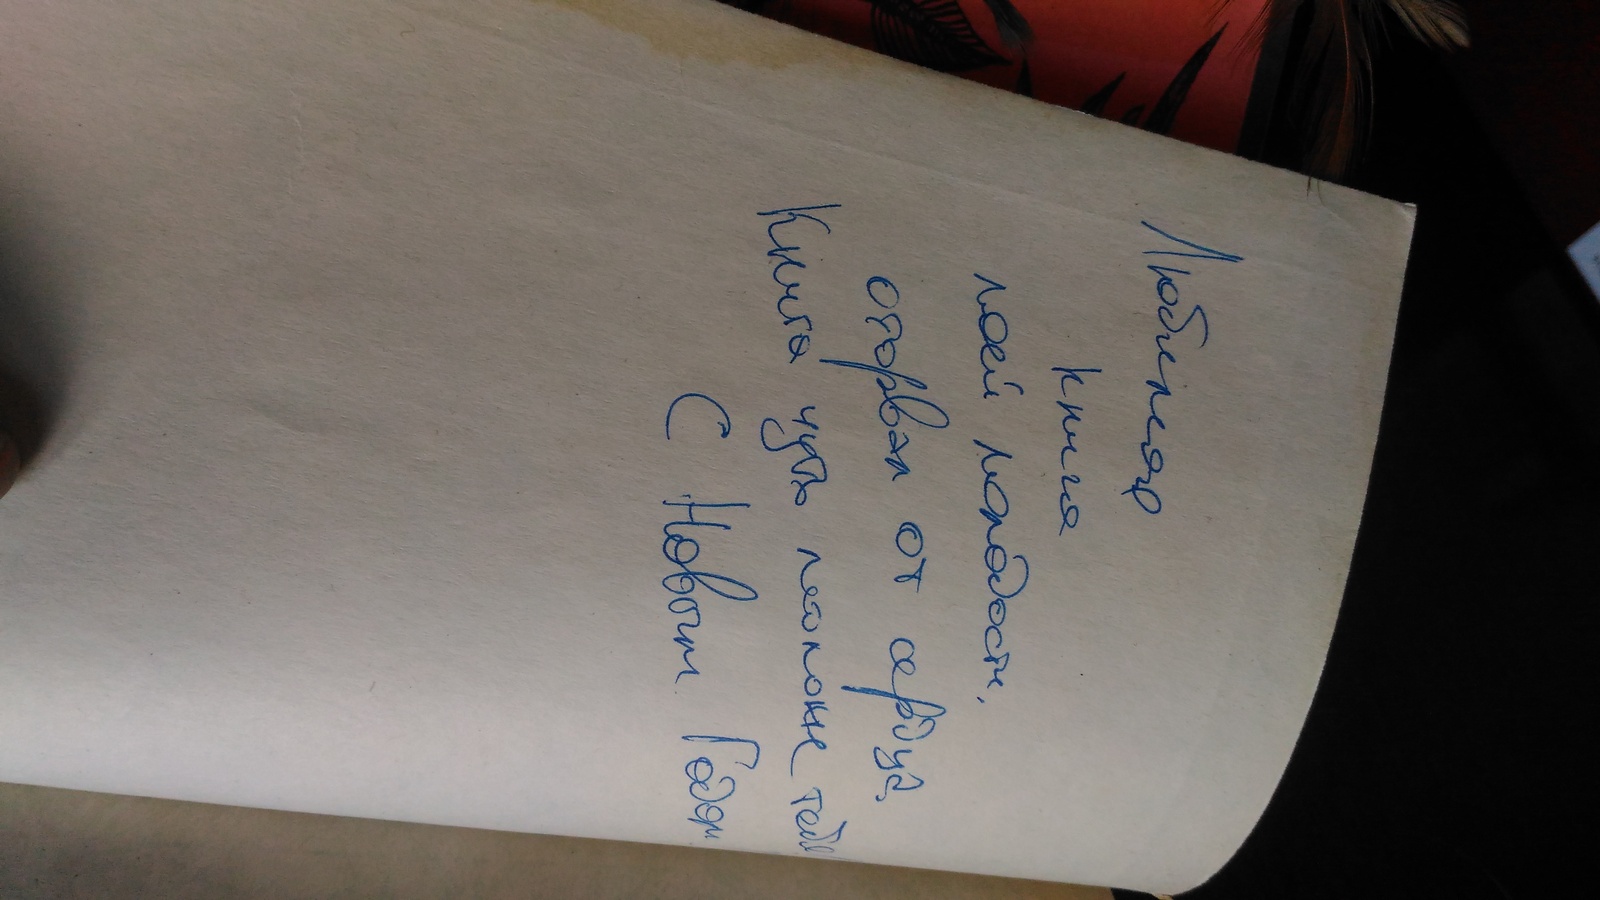 Любимая
книга
моей молодости,
оторвал от сердца.
Книга чуть моложе тебя
С Новым Годом